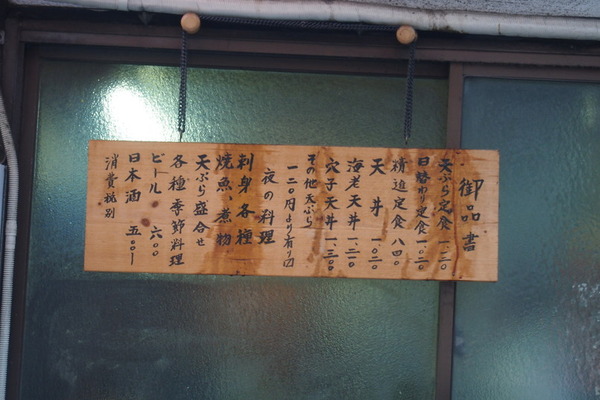 御品書
天ぷら定食 一、一二〇
日替わり定食 一、〇二〇
精進定食 八四〇
天丼 一、〇二〇
海老天丼 一、二一〇
穴子天丼 一、三三〇
その他天ぷら
一二〇円より有り〼
夜の料理
刺身各種
焼魚、煮物
天ぷら盛合せ
各種季節料理
ビール 六〇〇
日本酒 五〇〇ー
消費税別